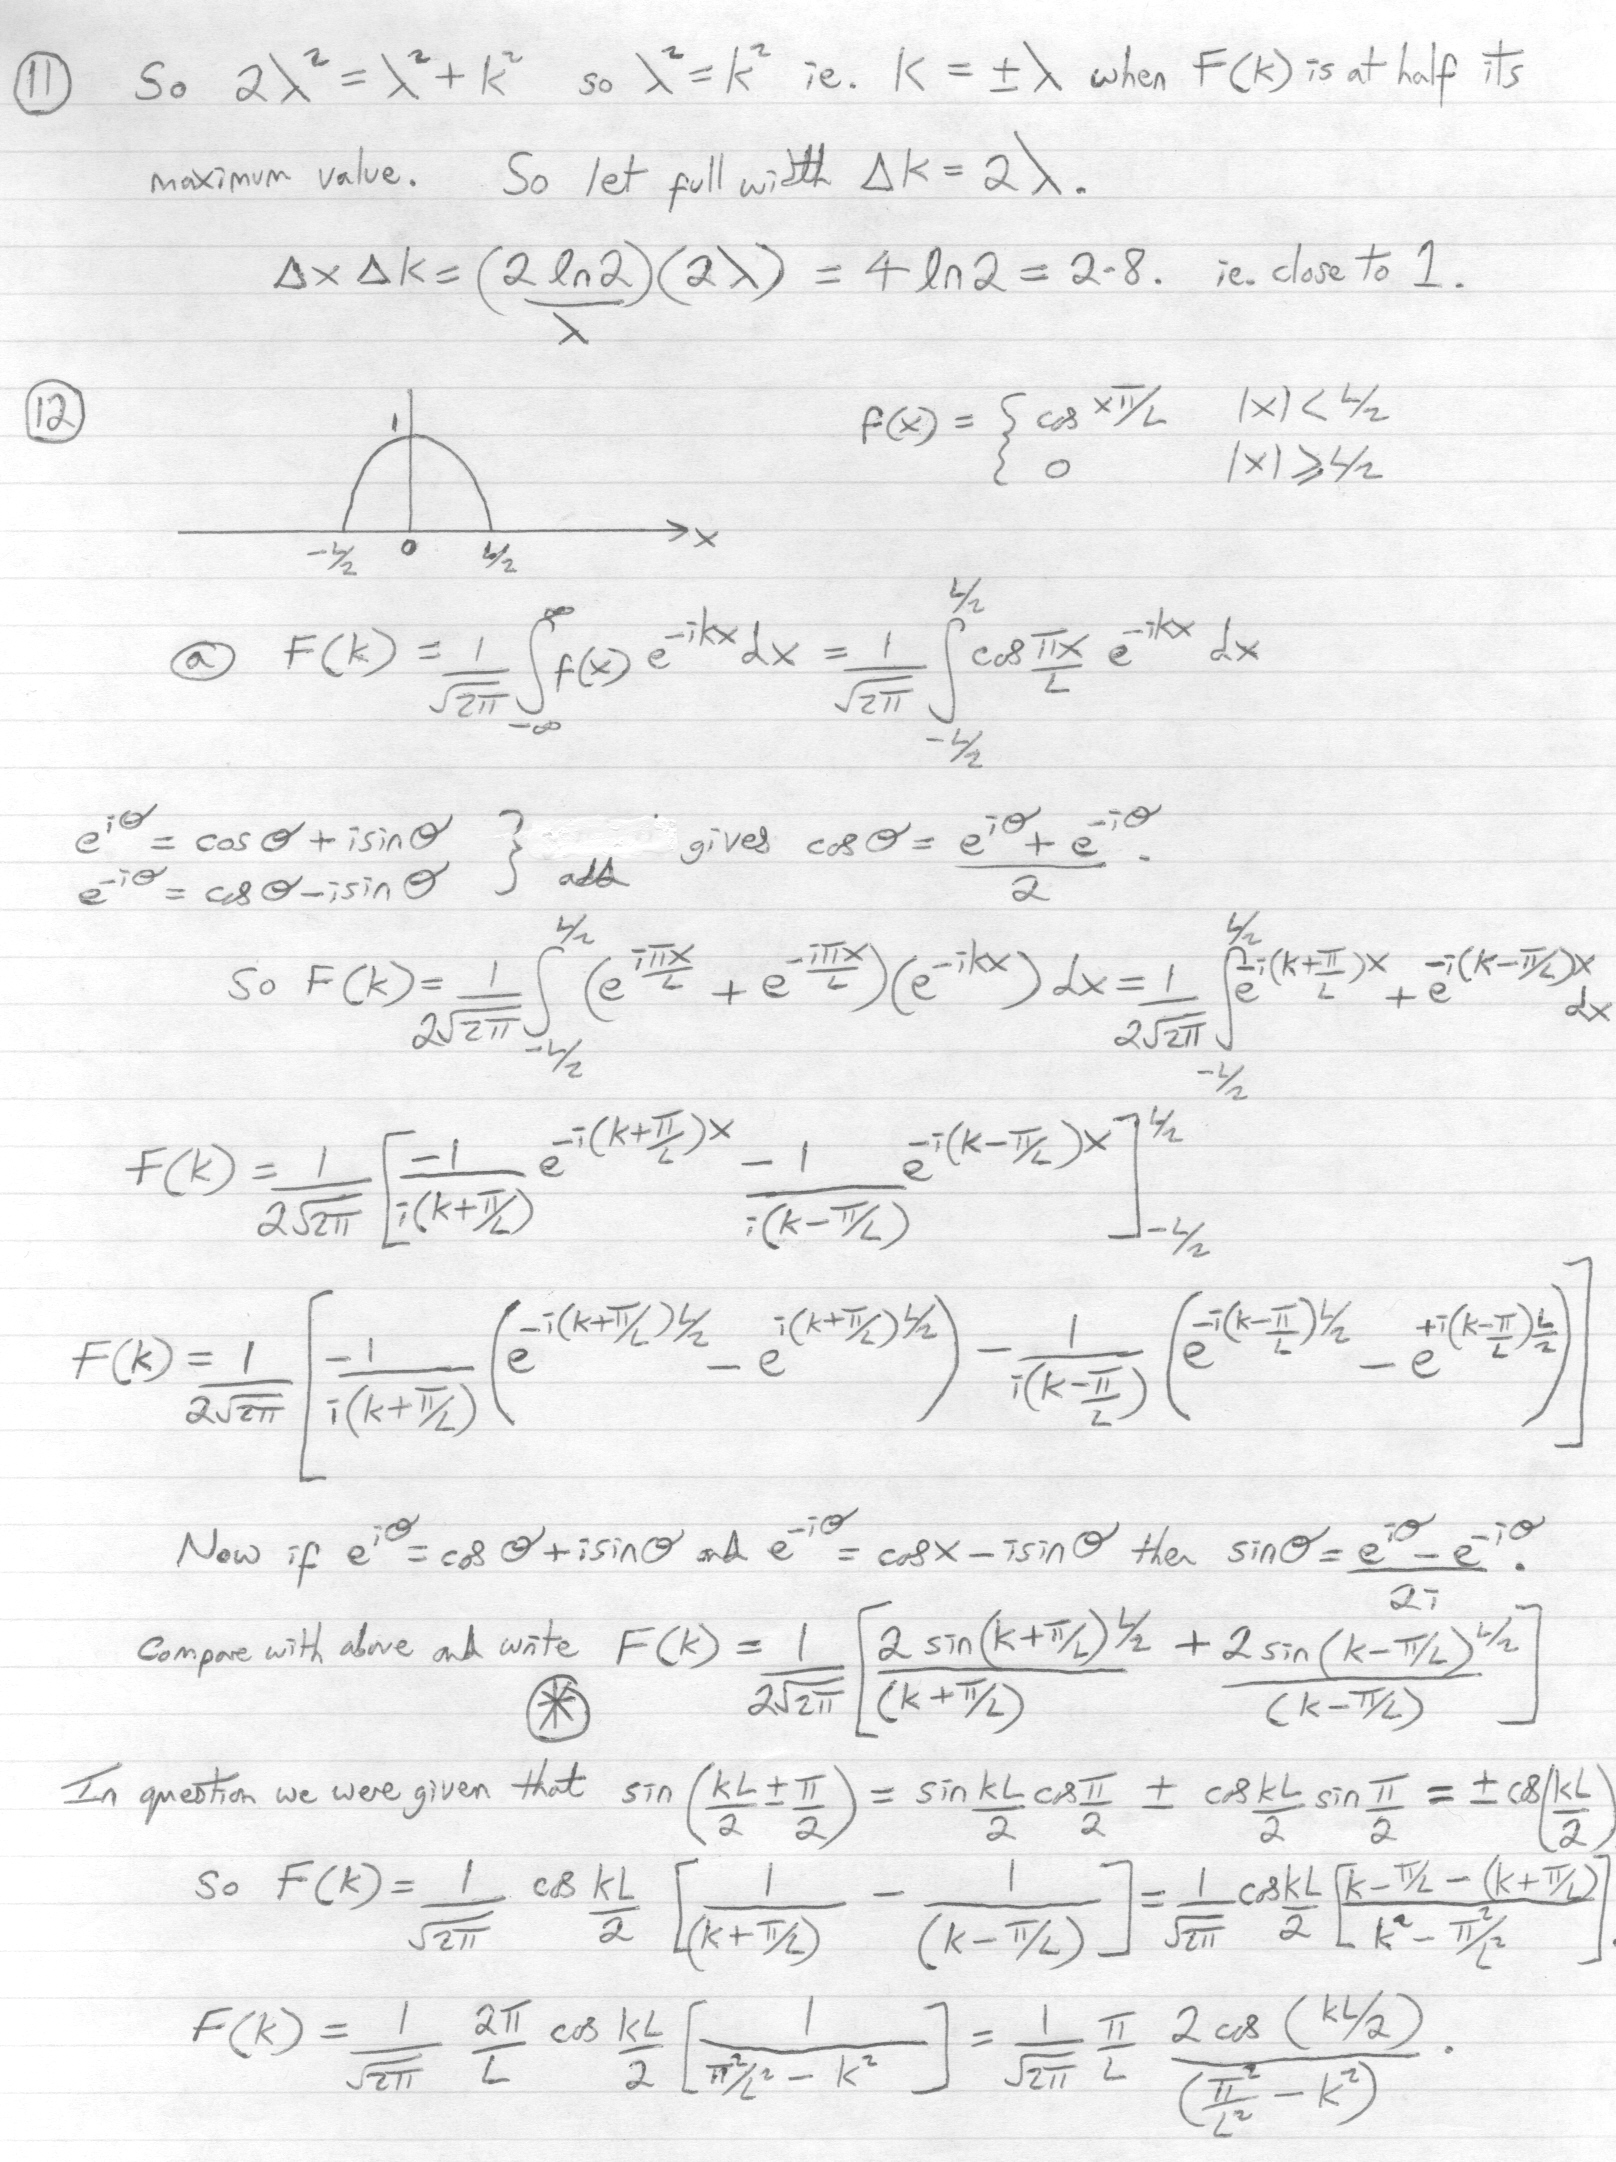 ⑪ So 2λ² = λ² + k² so λ² = k² ie. K = ±λ when F(k) is at half its
maximum value. So let full width Δk = 2λ.
Δx Δk = (2 ln2/λ)(2λ) = 4 ln2 = 2·8. ie. close to 1.
⑫ f(x) = { cos xπ/L |x| < L/2
0 |x| ⩾ L/2
1
-L/2 0 L/2 x
ⓐ F(k) = 1/√2π ∫_{-∞}^{∞} f(x) e^{-ikx} dx = 1/√2π ∫_{-L/2}^{L/2} cos πx/L e^{-ikx} dx
e^{iθ} = cosθ + isinθ } add gives cosθ = (e^{iθ} + e^{-iθ})/2.
e^{-iθ} = cosθ - isinθ
So F(k) = 1/2√2π ∫_{-L/2}^{L/2} (e^{iπx/L} + e^{-iπx/L})(e^{-ikx}) dx = 1/2√2π ∫_{-L/2}^{L/2} e^{-i(k+π/L)x} + e^{-i(k-π/L)x} dx
F(k) = 1/2√2π [ -1/i(k+π/L) e^{-i(k+π/L)x} - 1/i(k-π/L) e^{-i(k-π/L)x} ]_{-L/2}^{L/2}
F(k) = 1/2√2π [ -1/i(k+π/L) ( e^{-i(k+π/L)L/2} - e^{i(k+π/L)L/2} ) - 1/i(k-π/L) ( e^{-i(k-π/L)L/2} - e^{+i(k-π/L)L/2} ) ]
Now if e^{iθ} = cosθ + isinθ and e^{-iθ} = cosx - isinθ then sinθ = (e^{iθ} - e^{-iθ})/2i.
Compare with above and write F(k) = 1/2√2π [ 2 sin(k+π/L)L/2 / (k+π/L) + 2 sin(k-π/L)L/2 / (k-π/L) ]
⊛
In question we were given that sin (kL/2 ± π/2) = sin kL/2 cos π/2 ± cos kL/2 sin π/2 = ± cos(kL/2)
So F(k) = 1/√2π cos kL/2 [ 1/(k+π/L) - 1/(k-π/L) ] = 1/√2π cos kL/2 [ (k-π/L - (k+π/L)) / (k² - π²/L²) ].
F(k) = 1/√2π 2π/L cos kL/2 [ 1/(π²/L² - k²) ] = 1/√2π π/L 2 cos (kL/2) / (π²/L² - k²).